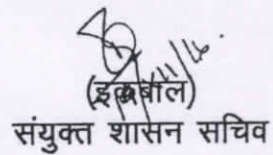 (इकबाल)
संयुक्त शासन सचिव